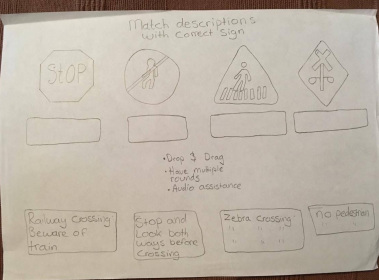 Match descriptions
with correct sign
StOP
• Drop & Drag
• Have multiple
rounds
• Audio assistance
Railway Crossing
Beware of
train
Stop and
Look both
ways before
Crossing
Zebra Crossing
" " "
" " "
no pedestrian
" "